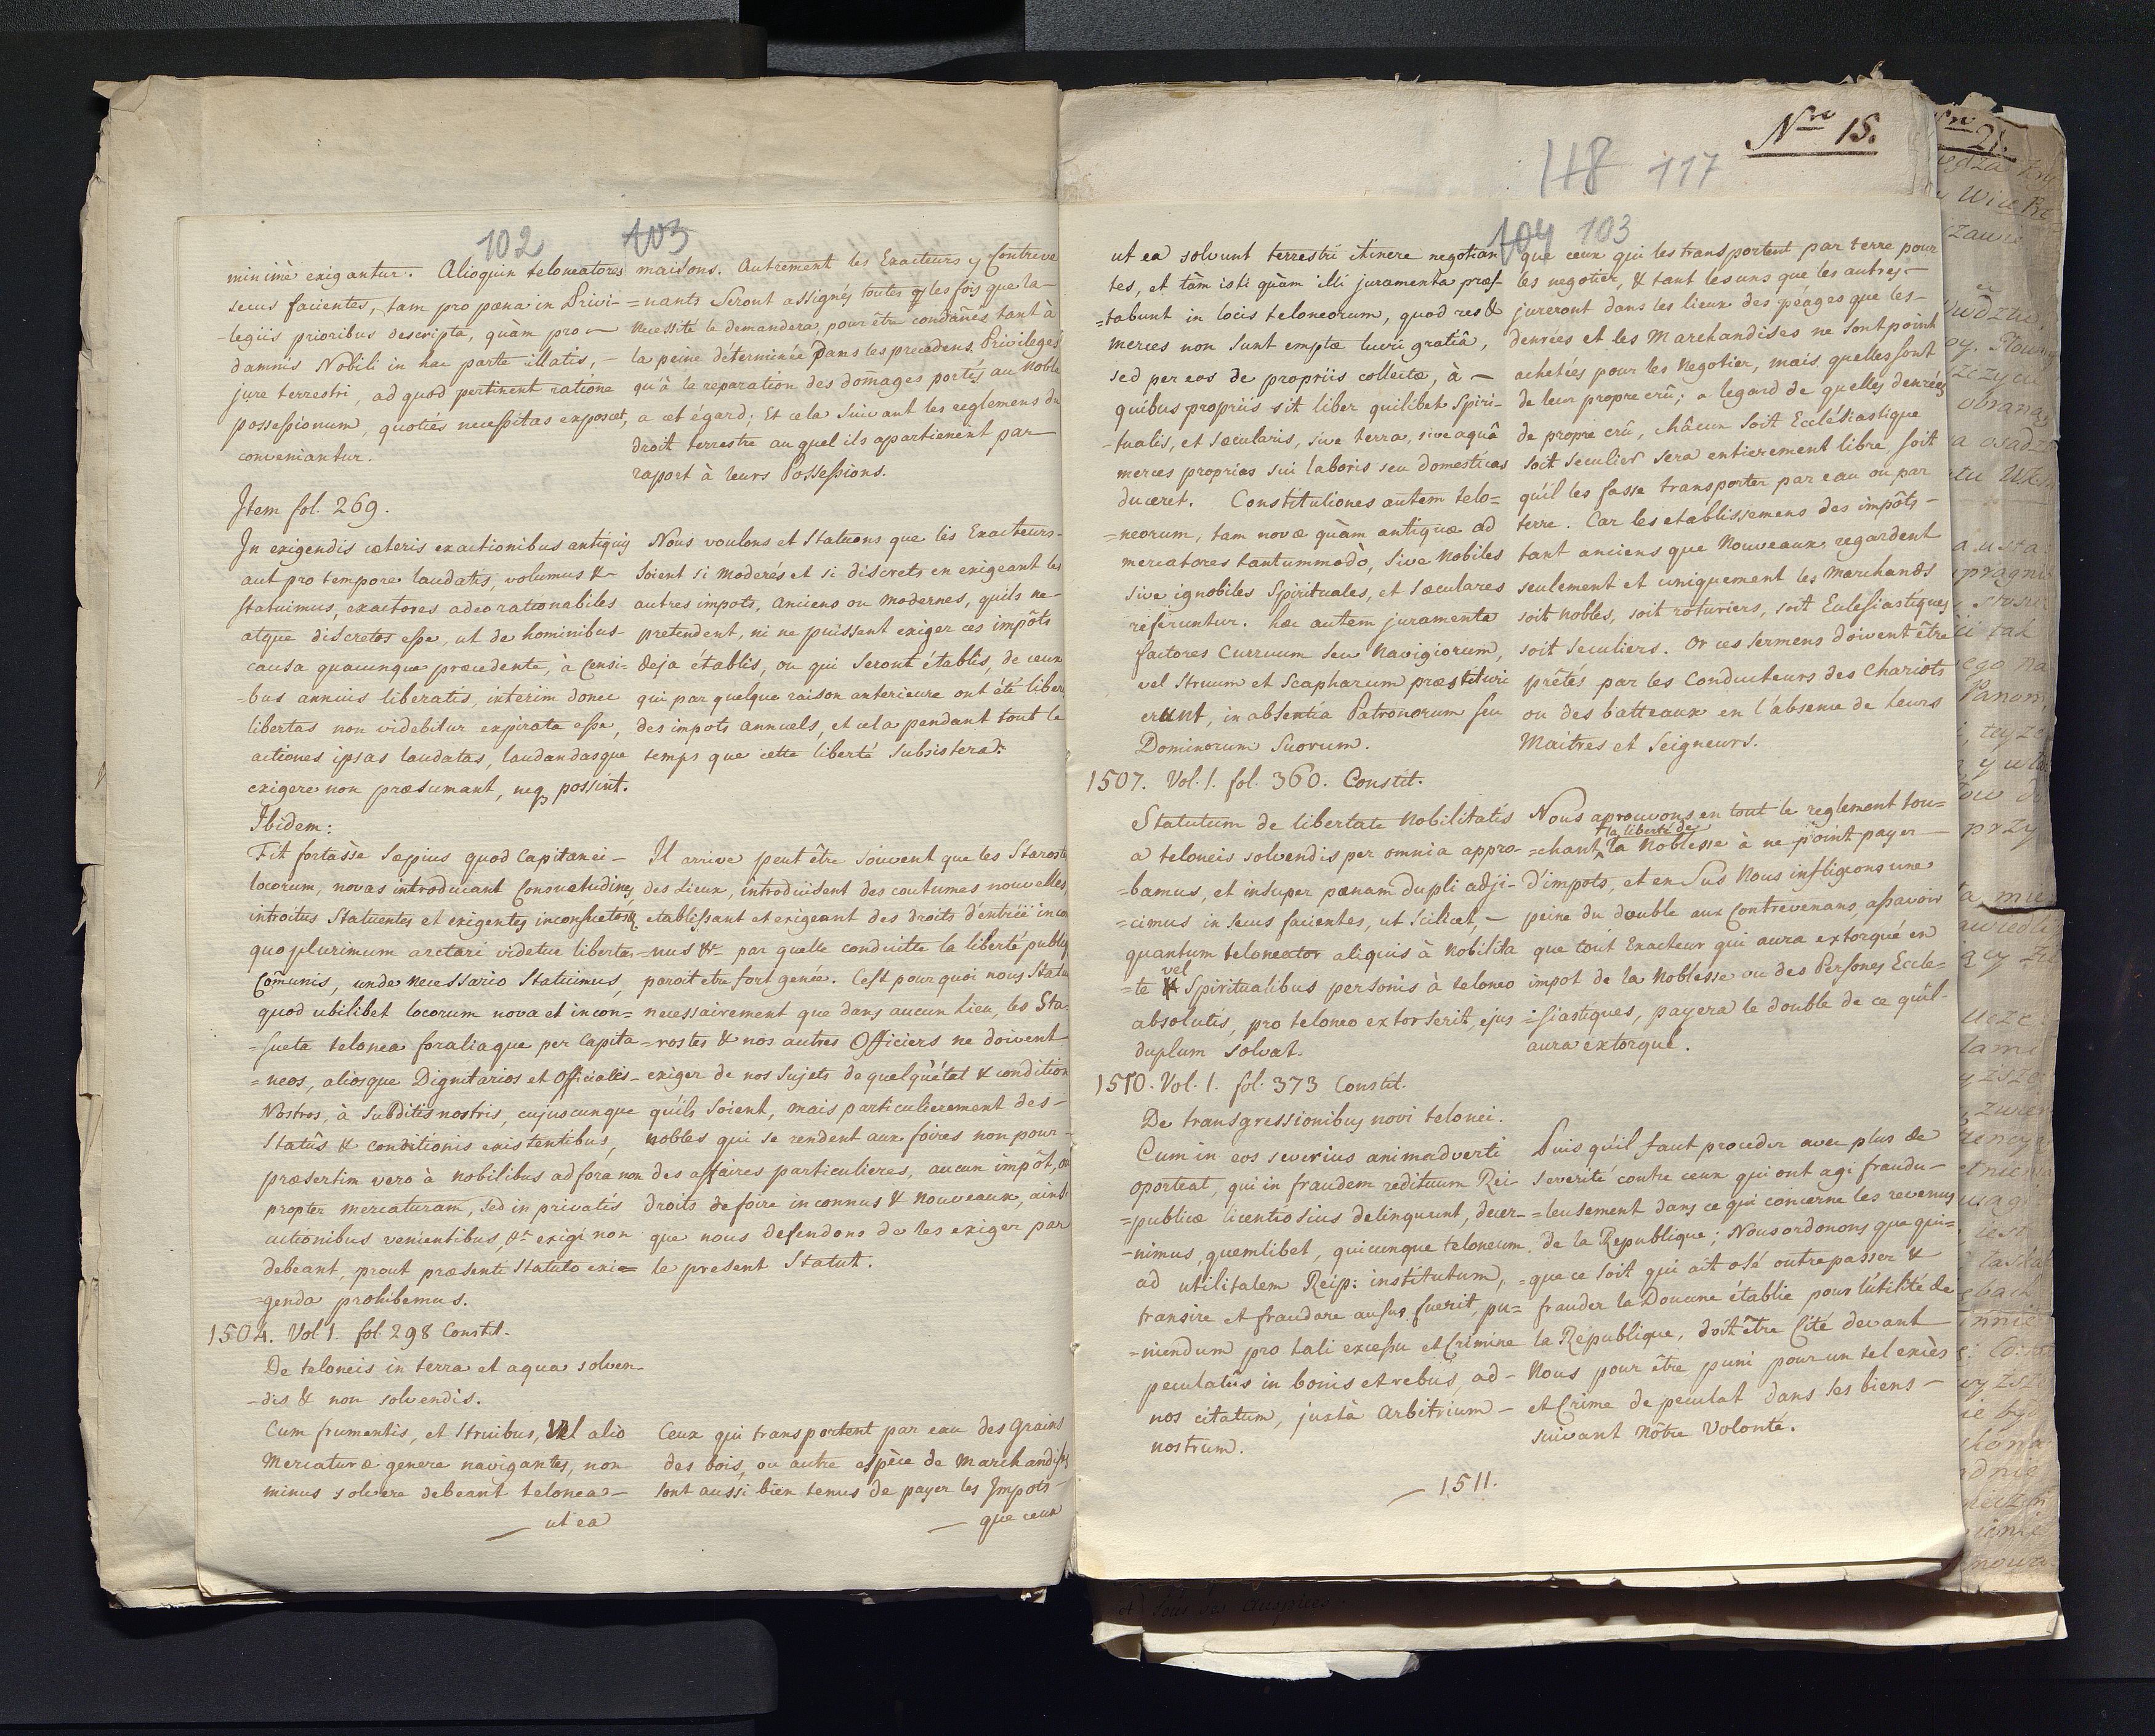 102 103
minimè exigantur. Alioquin teloneatores
secus facientes, tam pro pæna in Privi-
-legiis prioribus descripta, quam pro
damnis Nobili in hac parte illatis, -
jure terrestri, ad quod pertinent ratione
possessionum, quotiés necessitas exposcet,
conveniantur.
maisons. Autrement les Exacteurs y Contreve
=nants Seront assignés toutes les fois que la-
necessité le demandera, pour être condañés tant à
la peine déterminée dans les precedens Privileges
qu'à la reparation des dom̃ages portés au Noble
a cet égard; Et cela Suivant les reglemens du
droit terrestre auquel ils apartienent par
raport à leurs Possessions.
Item fol. 269.
In exigendis cæteris exactionibus antiquis
aut pro tempore laudatis, volumus &-
statuimus, exactores adeo rationabiles
atque discretos esse, ut de hominibus-
causa quacunque præcedente, à Censi-
-bus annuis liberatis, interim donec
libertas non videbitur expirata esse,
actiones ipsas laudatas, laudandasque
exigere non præsumant, neq possint.
Nous voulons et Statuons que les Exacteurs-
Soient si moderés et si discrets en exigeant les
autres impots, anciens ou modernes, qu'ils ne-
pretendent, ni ne puissent exiger ces impôts
deja établis, ou qui seront établis, de ceux
qui par quelque raison anterieure ont été liber
des impots annuels, et cela pendant tout le
temps que cette liberté Subsistera.
Ibidem:
Fit fortàsse Sæpius quod Capitanei-
locorum, novas introducant Consuetudines
introitus Statuentes et exigentes inconsuetos &
quo plurimum arctari videtur libertas
Com̃unis, unde necessario Statuimus,
quod ubilibet locorum nova et incon=
=sueta telonea foraliaque per Capita
=neos, aliosque Dignitarios et Officiales-
Nostros, à Subditis nostris, cujuscunque
Statûs & conditionis existentibus,
præsertim vero à nobilibus ad fora non
propter mercaturam, sed in privatis
actionibus venientibus, &t exigi non
debeant, prout præsenti Statuto exi=
=genda prohibemus.
Il arrive peut être souvent que les Staroste
des Lieux, introduisent des coutumes nouvelles,
etablissant et exigeant des droits d'entrée incon
=nus &- par quelle conduite la liberté publiq
paroit etre fort genée. C'est pourquoi nous Statu
necessairement que dans aucun Lieu, les Sta-
=rostes & nos autres Officiers ne doivent
exiger de nos Sujets de quelqu'état & condition
qu'ils Soient, mais particulierement des-
nobles qui se rendent aux foires non pour-
des affaires particulieres, aucun impôt, ou
droits de foire inconnus & nouveaux, ainsi
que nous defendons de les exiger par
le present Statut.
1504. Vol 1. fol. 298 Constit.
De teloneis in terra et aqua solven
-dis & non solvendis.
Cum frumentis, et Struibus, vel alio
Mercaturæ genere navigantes, non
minus solvere debeant telonea-
ut ea
Ceux qui transportent par eau des Grains
des bois, ou autre espèce de Marchandises
sont aussi bien tenus de payer les Impots-
que ceux
Nro 15.
118 117
104 103
ut ea solvunt terrestri itinere negotian
tes, et tàm isti quàm illi juramenta præs-
=tabunt in locis teloneorum, quod res &
merces non Sunt emptæ lucri gratiâ,
sed per eos de propriis collectæ, à -
quibus propriis sit liber quilibet Spiri-
-tualis, et sæcularis, sive terra, sive aquâ
merces proprias sui laboris seu domesticas
duceret. Constitutiones autem telo=
=neorum, tam novæ quàm antiquæ ad
mercatores tantummodò, Sive Nobiles
sive ignobiles Spirituales, et sæculares
referuntur. hæc autem juramenta
factores Curruum seu Navigiorum,
vel Struum et Scapharum præstituri
erunt, in absentia Patronorum seu
Dominorum Suorum.
que ceux qui les transportent par terre pour
les negotier, & tant les uns que les autres-
jureront dans les lieux des péages que les-
denrées et les Marchandises ne Sont point
achetées pour les Negotier, mais quelles sont
de leur propre crû; a legard de quelles denrées
de propre crû, châcun soit Ecclésiastique
soit seculier sera entierement libre soit
qu'il les fasse transporter par eau ou par
terre. Car les etablissemens des impôts-
tant anciens que Nouveaux regardent
seulement et uniquement les Marchands
soit nobles, soit roturiers, soit Eclesiastiques
soit Seculiers. Or ces Sermens doivent être
prêtés par les Conducteurs des Chariots
ou des batteaux en l'absence de leurs
Maitres et Seigneurs.
1507. Vol. 1. fol. 360. Constit.
Statutum de libertate Nobilitatis
a teloneis solvendis per omnia appro-
=bamus, et insuper pœnam dupli adji-
=cimus in secus facientes, ut Scilicet, -
quantum teloneator aliquis à Nobilita
=te vel Spiritualibus personis à teloneo
absolutis, pro teloneo extorserit, ejus
duplum solvat.
Nous aprouvons en tout le reglement tou=
=chant la liberté de la Noblesse à ne point payer
d'impots, et en Sus Nous infligeons une
peine du double aux Contrevenans, assavoir
que tout Exacteur qui aura extorqué en
impot de la Noblesse ou des Persones Eccle=
=siastiques, payera le double de ce qu'il-
aura extorqué.
1510. Vol. 1. fol. 373 Constit.
De transgressionibus novi telonei.
Cum in eos severius animadverti
oporteat, qui in fraudem redituum Rei
=publicæ licentiosius delinquunt, decer-
-nimus, quemlibet, quicunque teloneum
ad utilitatem Reip: institutum,
transire et fraudare ausus fuerit, pu=
=niendum pro tali excessu et Crimine
peculatûs in bonis et rebus, ad-
nos citatum, juxtà arbitrium -
nostrum.
Puis qu'il faut proceder avec plus de
severité contre ceux qui ont agi fraudu-
=leusement dans ce qui concerne les revenus
de la Republique; Nous ordonons que qui=
=que ce soit qui ait osé outrepasser &
frauder la Douane établie pour lùtilité de
la République, doit être Cité devant
Nous pour être puni pour un tel excès
et Crime de peculat dans ses biens -
suivant nôtre Volonté.
1511.